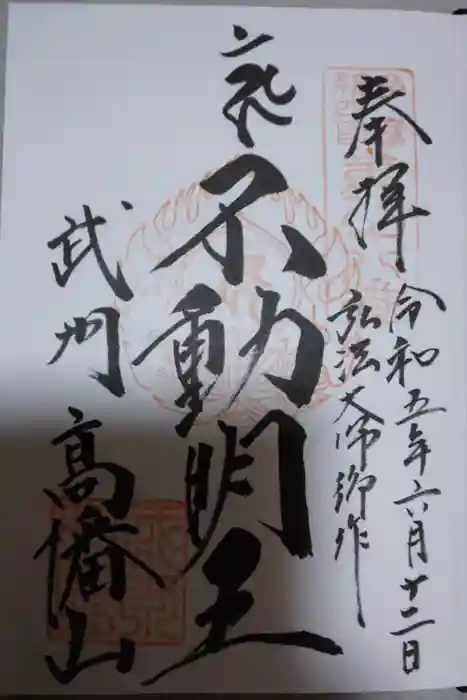 奉拝
令和五年六月十二日
弘法大師御作
不動明王
武州
高幡山